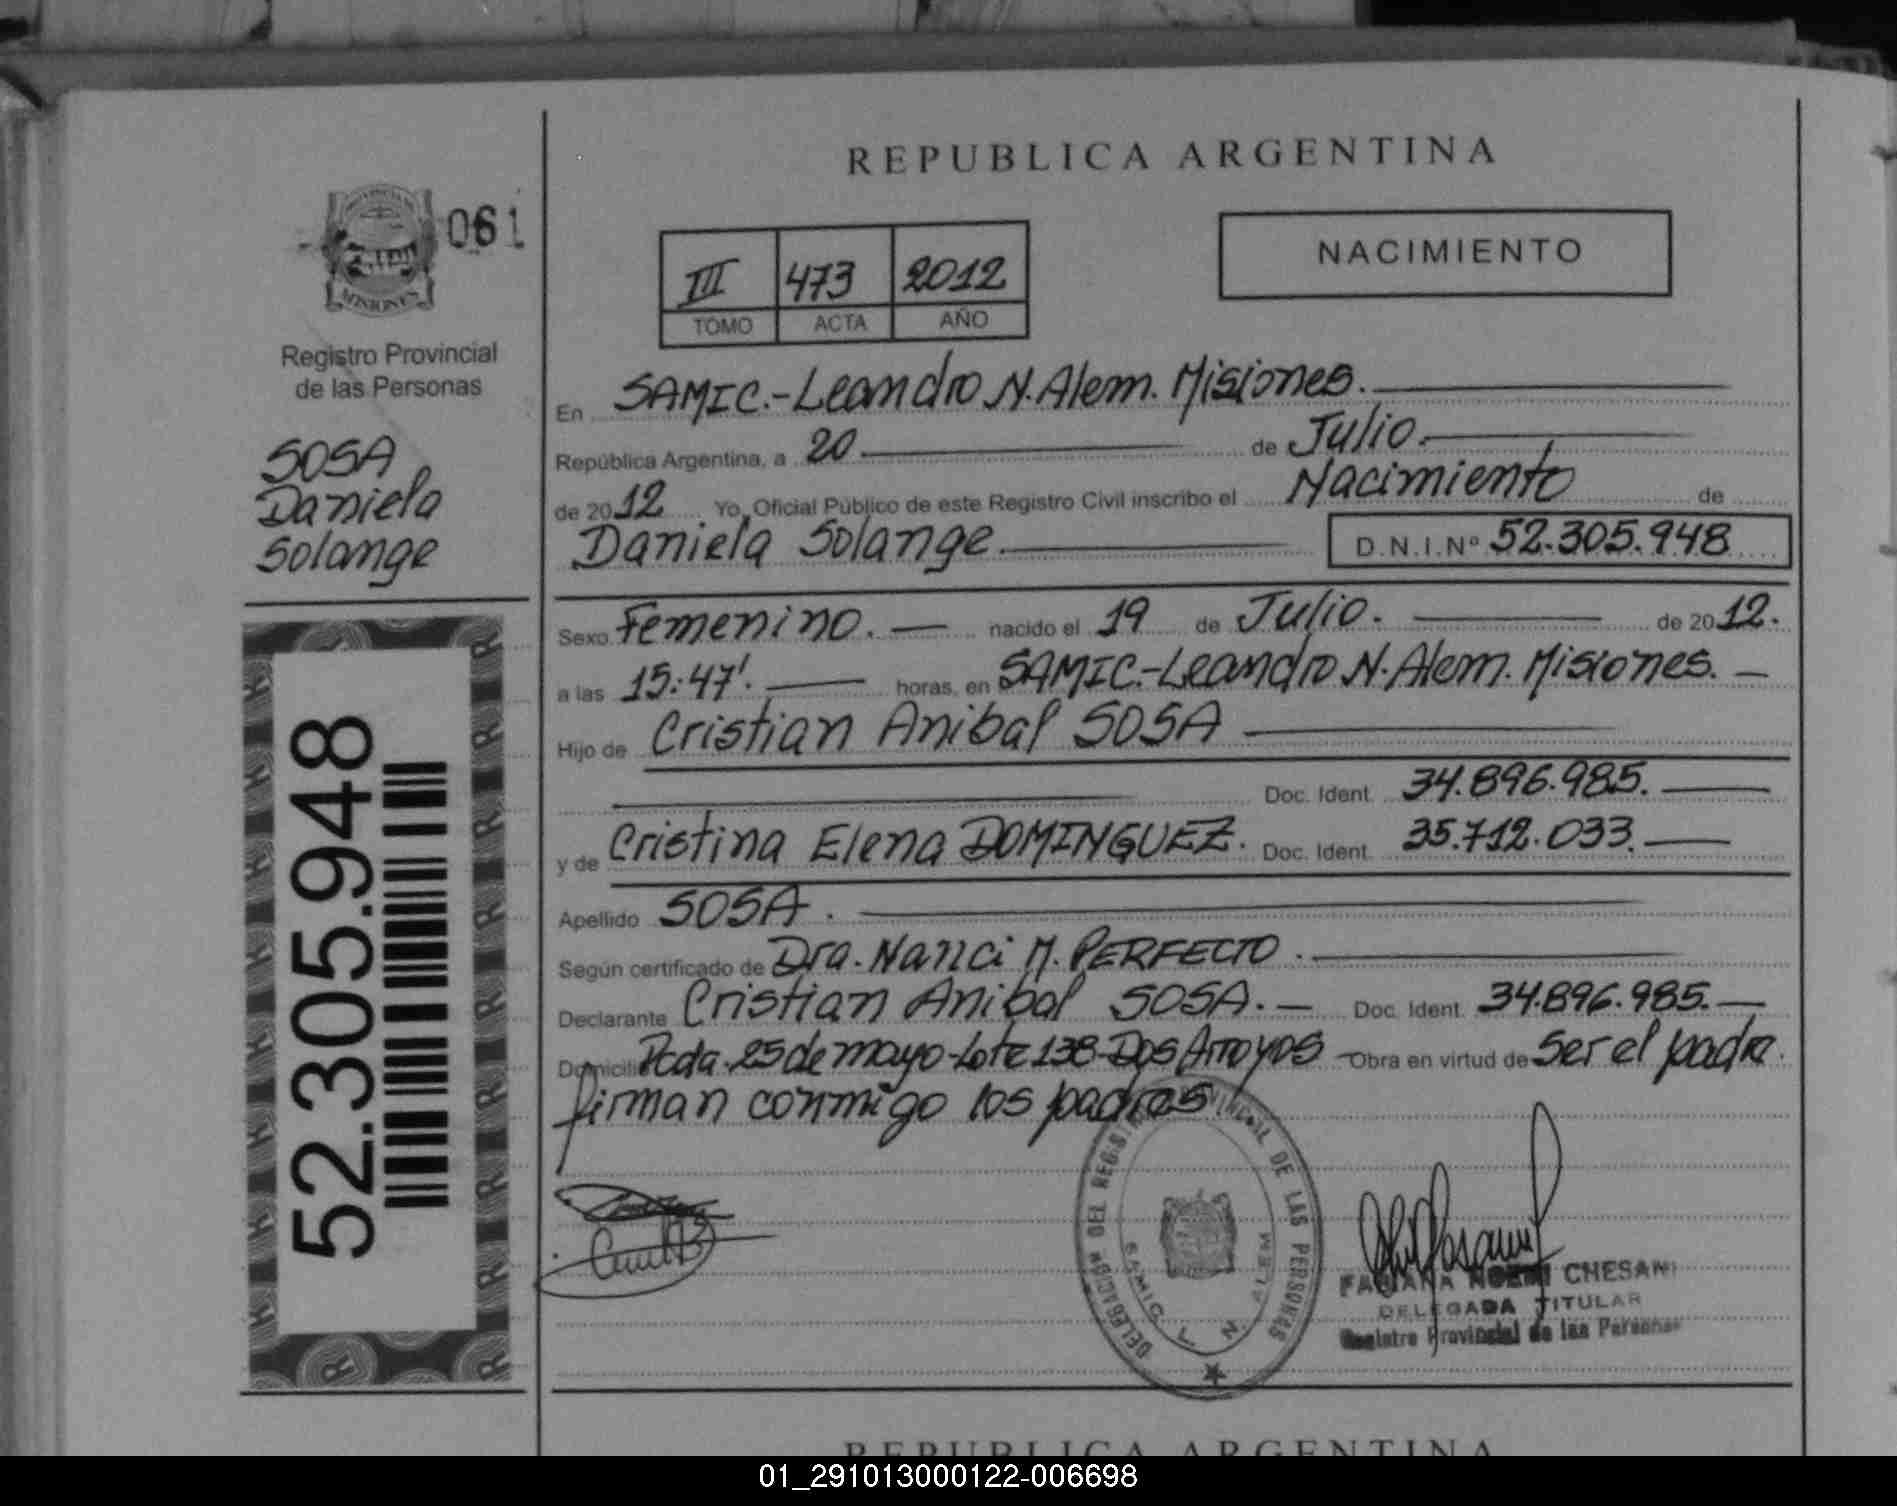 REPUBLICA ARGENTINA
MISIONES
061
III 473 2012
TOMO ACTA AÑO
NACIMIENTO
Registro Provincial
de las Personas
SOSA
Daniela
Solange
En SAMIC.-Leandro N. Alem. Misiones.
República Argentina, a 20 de Julio.
de 2012 Yo, Oficial Público de este Registro Civil inscribo el Nacimiento de
Daniela Solange. D.N.I.Nº 52.305.948
Sexo Femenino. nacido el 19 de Julio. de 2012.
a las 15:47'. horas, en SAMIC.-Leandro N. Alem. Misiones.
Hijo de Cristian Anibal SOSA
Doc. Ident. 34.896.985.
y de Cristina Elena DOMINGUEZ. Doc. Ident. 35.712.033.
Apellido SOSA.
Según certificado de Dra. Nanci M. PERFECTO.
Declarante Cristian Anibal SOSA. Doc. Ident. 34.896.985.
Domicilio Pcda. 25 de mayo-Lote 138-Dos Arroyos Obra en virtud de Ser el padre.
firman conmigo los padres
52.305.948
DELEGACION DEL REGISTRO PROVINCIAL DE LAS PERSONAS
SAMIC L. N. ALEM
FABIANA NOEMI CHESANI
DELEGADA TITULAR
Registro Provincial de las Personas
REPUBLICA ARGENTINA
01_291013000122-006698